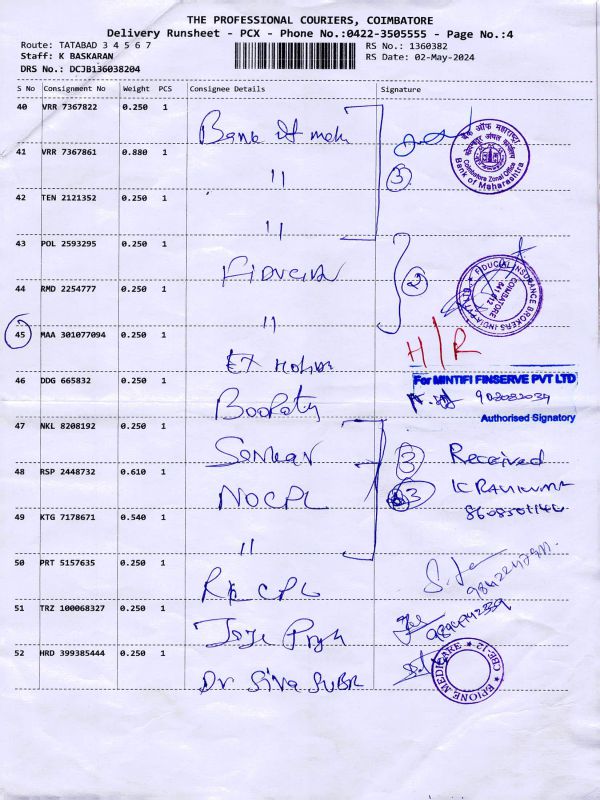 THE PROFESSIONAL COURIERS, COIMBATORE
Delivery Runsheet - PCX - Phone No.:0422-3505555 - Page No.:4
Route: TATABAD 3 4 5 6 7
RS No.: 1360382
Staff: K BASKARAN
RS Date: 02-May-2024
DRS No.: DCJB136038204
S No Consignment No Weight PCS Consignee Details Signature
40 VRR 7367822 0.250 1
Bank of mah
41 VRR 7367861 0.880 1
"
3
बैंक ऑफ महाराष्ट्र
Coimbatore Zonal Office
Bank of Maharashtra
42 TEN 2121352 0.250 1
"
43 POL 2593295 0.250 1
FIDUCIA
2
FIDUCIAL INSURANCE BROKERS INDIA PVT LTD
COIMBATORE
641 012
44 RMD 2254777 0.250 1
"
45 MAA 301077094 0.250 1
H/R
46 DDG 665832 0.250 1
Boopathy
For MINTIFI FINSERVE PVT LTD
Authorised Signatory
47 NKL 8208192 0.250 1
3 Received
48 RSP 2448732 0.610 1
NOCPL
3 K RAVIKUMAR
49 KTG 7178671 0.540 1
"
50 PRT 5157635 0.250 1
51 TRZ 100068327 0.250 1
52 HRD 399385444 0.250 1
Dr Siva SUBR
EPIONE MEDICARE CBE-12